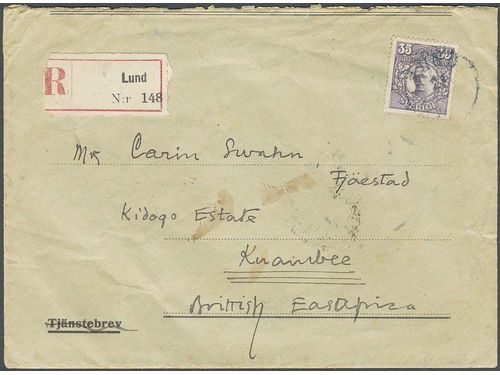 R
Lund
N:r 148
35 35
SVERIGE
Mrs Carin Swahn,
Fjäestad
Kidogo Estate
Kuambee
British East Africa
Tjänstebrev